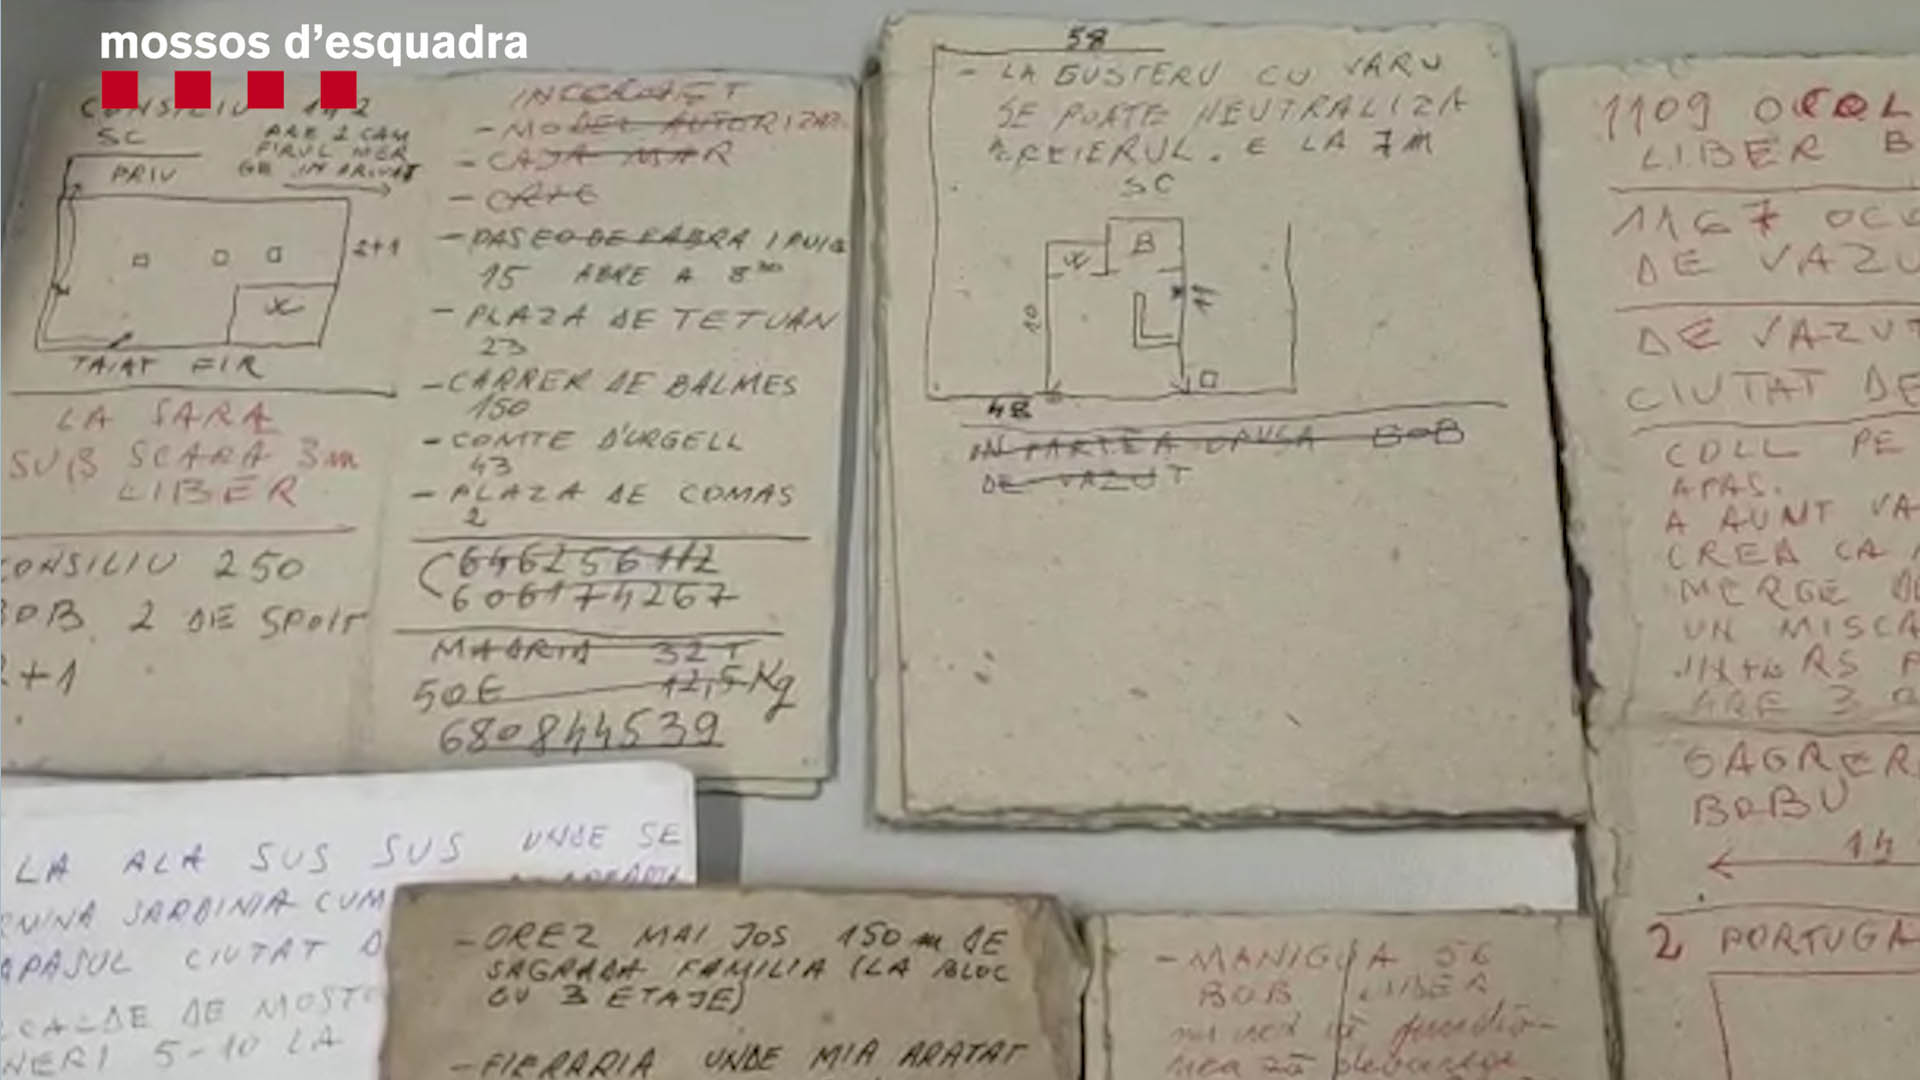 mossos d'esquadra
CONSILIU
SC
ARE 2 CAM
FIRUL MER
GE IN
PRIV
2+1
X
TAIAT FIR
LA SARA
SUB SCARA 3m
LIBER
CONSILIU 250
BOB 2 DE SPOIT
2+1
- MODEL AUTORIZAR
- CAJA MAR
- CRTE
- PASEO DE FABRA I PUIG
15 ABRE A 8³⁰
- PLAZA DE TETUAN
23
- CARRER DE BALMES
150
- COMTE D'URGELL
43
- PLAZA DE COMAS
2
646256112
606174267
32 T
50E 12,5 Kg
680844539
58
- LA GUSTERU CU VARU
SE POATE NEUTRALIZA
. E LA 7M
SC
X B
10 11
48
IN PARTEA OPUSA BOB
DE VAZUT
1109 OCOL
LIBER B
1167
DE VAZU
DE VAZUT
CIUTAT DE
COLL PE
APAS.
A AUNT VA
CREA CA
MERGE
UN MISCA
ARE 3
SAGRER
BOBU
14
2 PORTUGA
LA ALA SUS SUS UNDE SE
SARDINIA CUM
APASUL CIUTAT D
DE MOST
NERI 5-10 LA
- OREZ MAI JOS 150 m DE
SAGRADA FAMILIA (LA BLOC
CU 3 ETAJE)
- FIERARIA UNDE MIA ARATAT
- MANIGUA 56
BOB LIBER